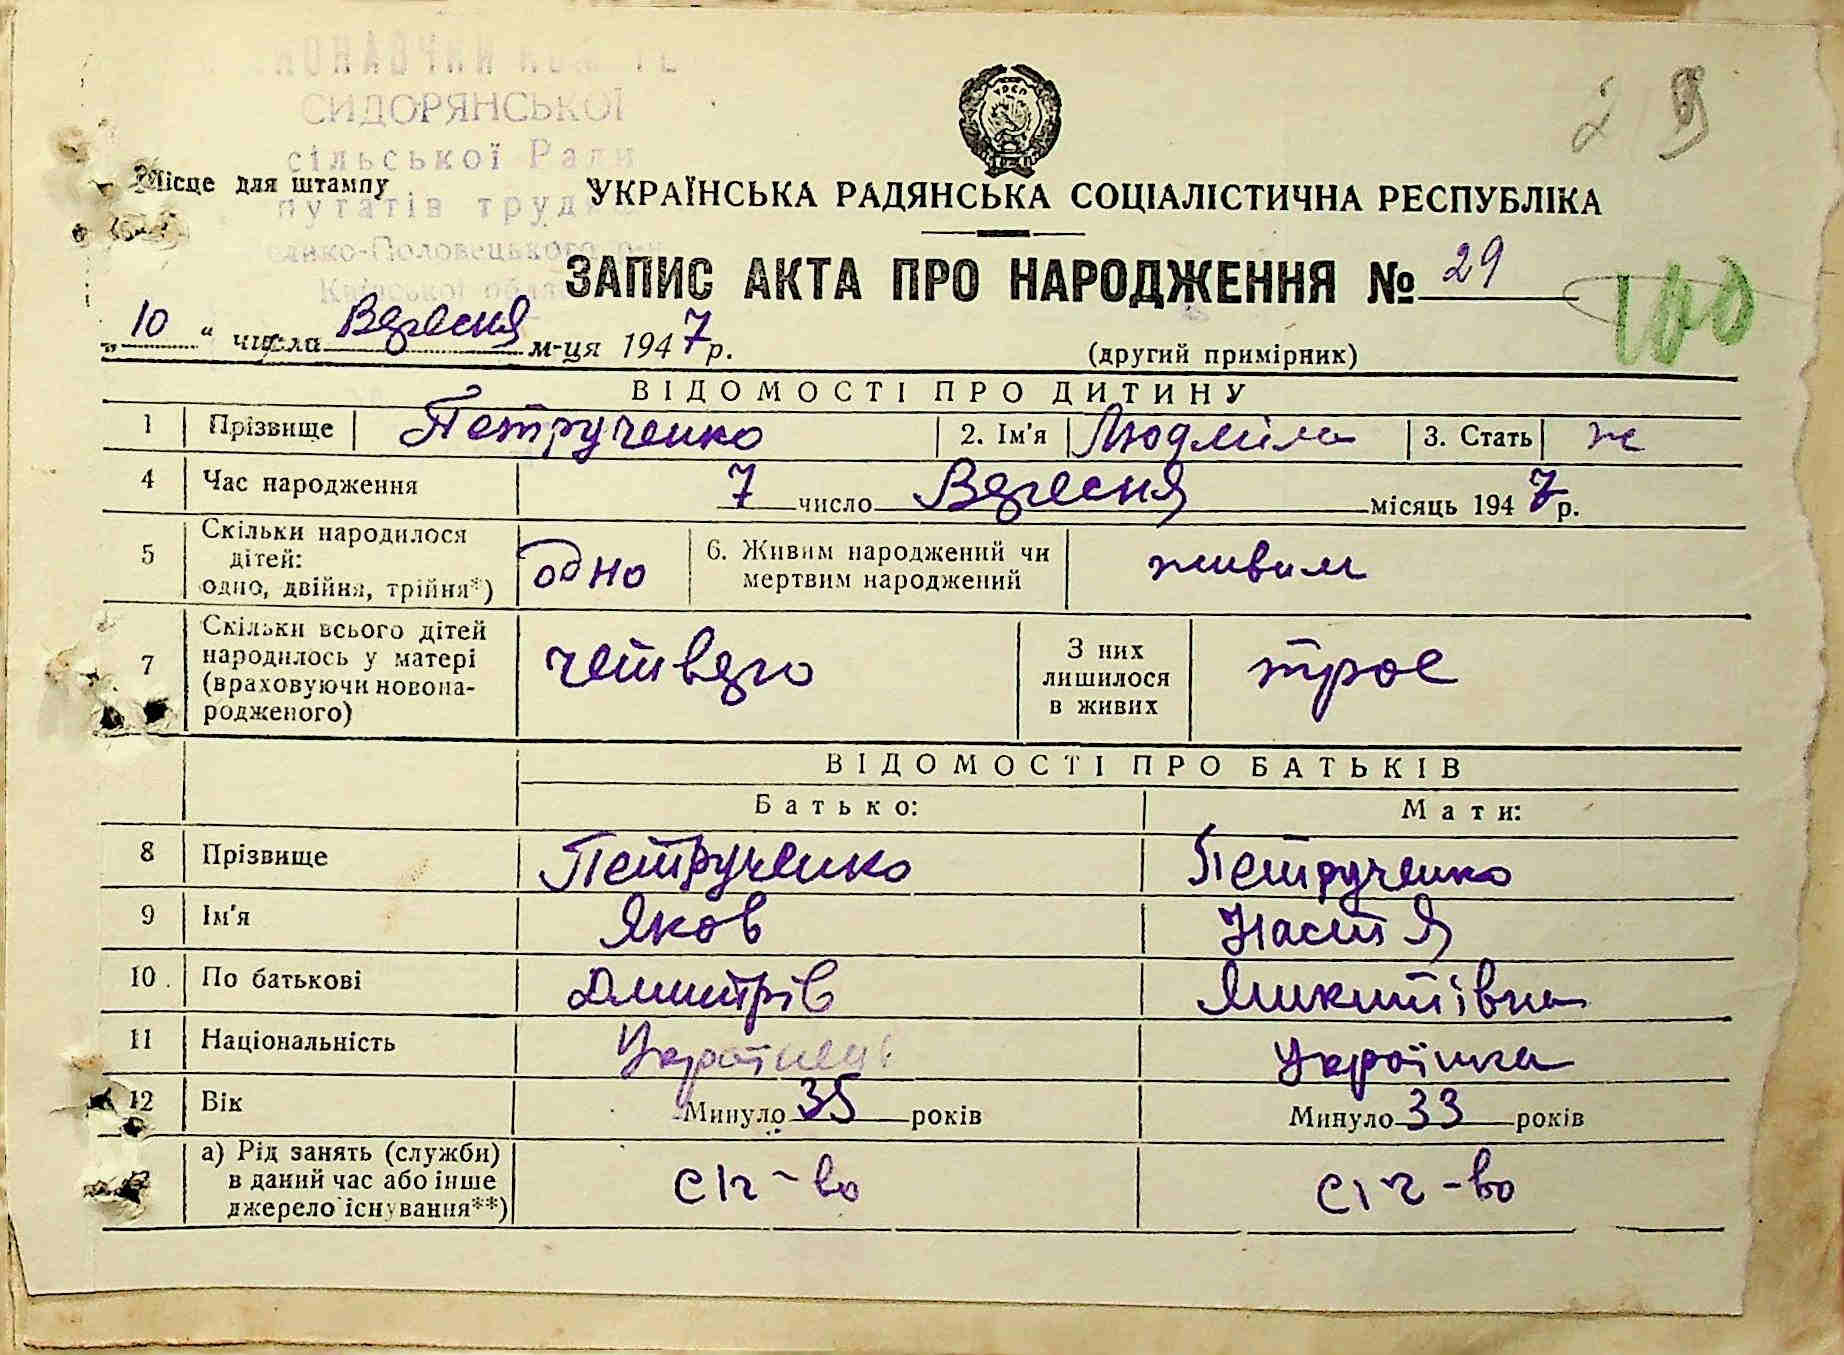 СИДОРЯНСЬКОЇ
сільської Ради
Місце для штампу
путатів труд
УКРАЇНСЬКА РАДЯНСЬКА СОЦІАЛІСТИЧНА РЕСПУБЛІКА
елико-Половецького р-н
Київської обла
ЗАПИС АКТА ПРО НАРОДЖЕННЯ № 29
100
„10“ числа Вересня м-ця 1947 р.
(другий примірник)
ВІДОМОСТІ ПРО ДИТИНУ
1 Прізвище Петрученко 2. Ім'я Людміла 3. Стать ж
4 Час народження 7 число Вересня місяць 1947 р.
5 Скільки народилося дітей: одно, двійня, трійня*) одно 6. Живим народжений чи мертвим народжений живим
7 Скільки всього дітей народилось у матері (враховуючи новонародженого) четверо З них лишилося в живих трое
ВІДОМОСТІ ПРО БАТЬКІВ
Батько: Мати:
8 Прізвище Петрученко Петрученко
9 Ім'я Яков Настя
10. По батькові Дмитрів Микитівна
11 Національність Українець Українка
12 Вік Минуло 35 років Минуло 33 років
а) Рід занять (служби) в даний час або інше джерело існування**) с/г-во с/г-во